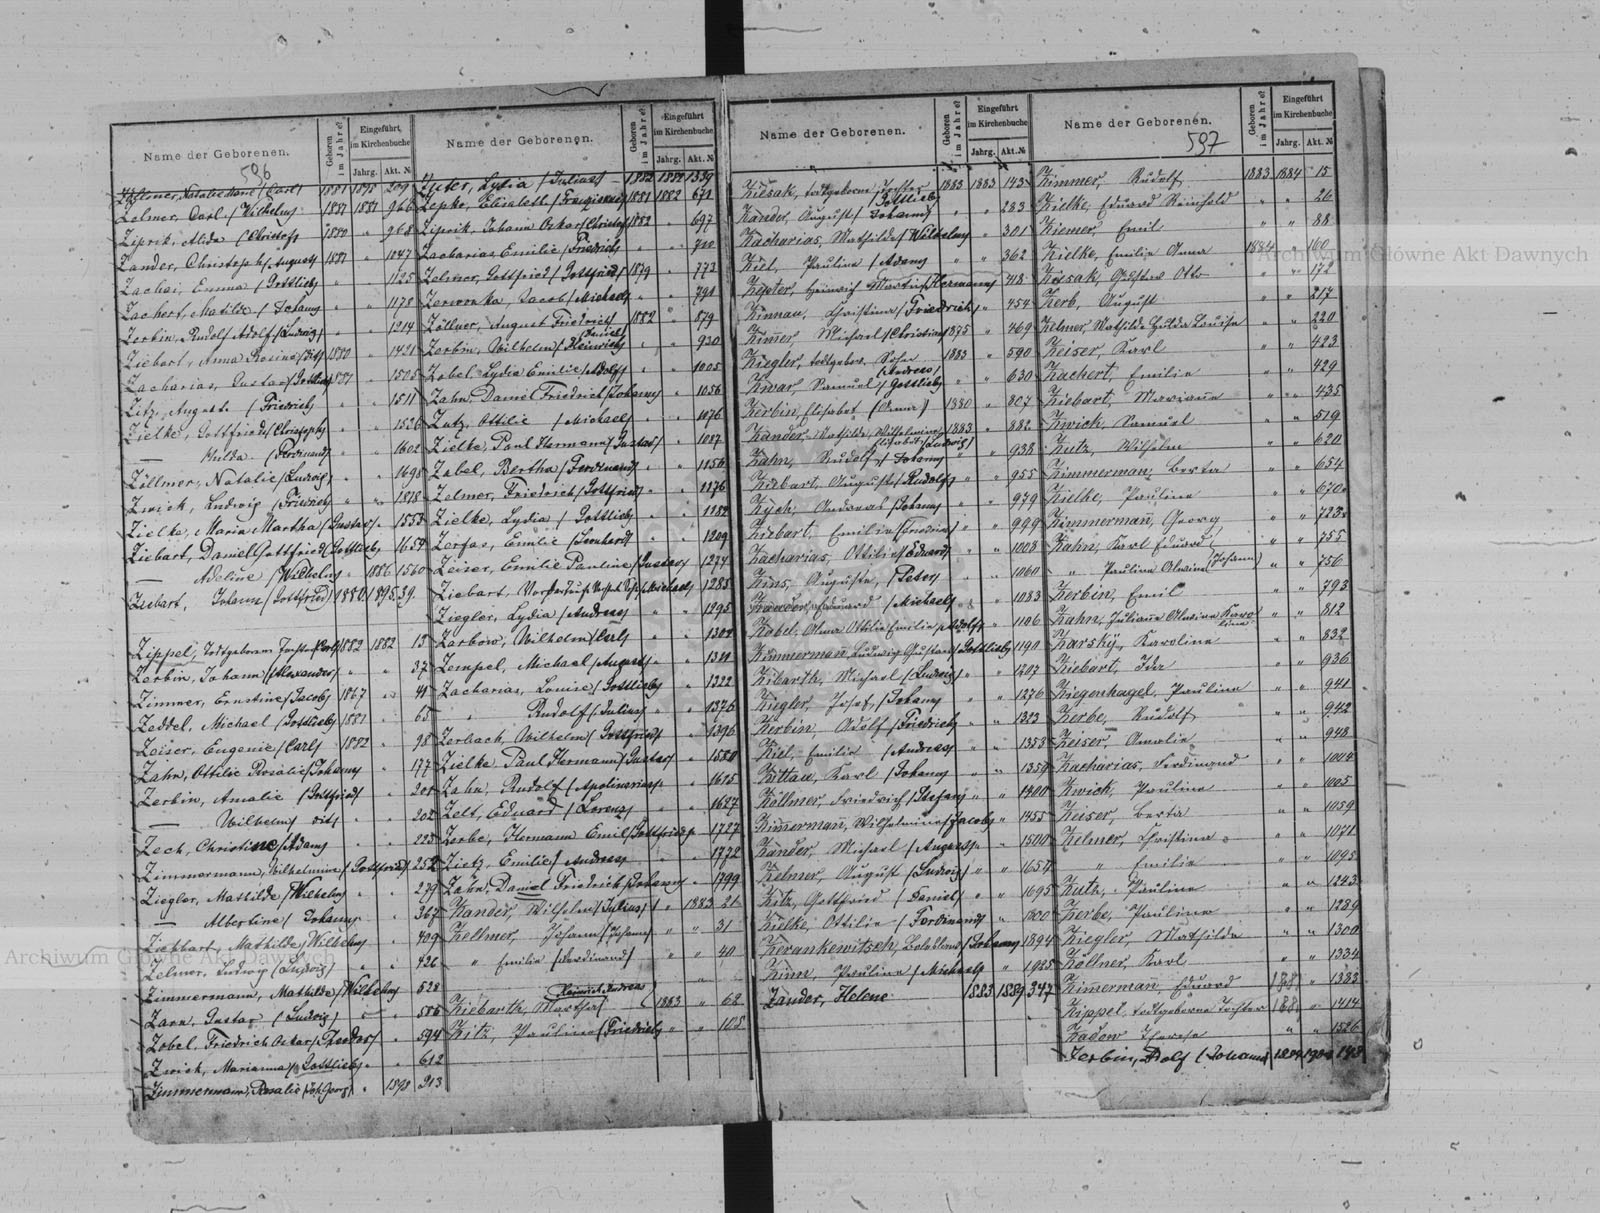 596
Name der Geborenen.
Geboren im Jahre
Eingeführt im Kirchenbuche
Jahrg. Akt. №
Zelmer, Carl (Wilhelm) 1881 1881 966
Ziprik, Alida (Christof) 1880 " 968
Zander, Christoph (August) 1881 " 1047
Zachai, Emma (Gottlieb) " " 1125
Zachert, Matilde (Johann) " " 1178
Zerbin, Rudolf Adolf (Ludwig) " " 1214
Ziebart, Anna Rosine 1880 " 1421
Zacharias, Gustav (Gottlieb) 1881 " 1505
Zitz, Auguste (Friedrich) " " 1511
Zielke, Gottfried (Christoph) " " 1526
— Hulda (Ferdinand) " " 1602
Zöllmer, Natalie (Ludwig) " " 1698
Zwick, Ludwig (Friedrich) " " 1818
Zielke, Maria Martha (Gustav) " 1553
Ziebart, Daniel Gottfried (Gottlieb) " 1654
— Adeline (Wilhelm) " 1886 1560
Ziebart, Johann (Gottfried) 1880 1895 39
Zippel, Todtgeborene Tochter (Carl) 1882 1882 13
Zerbin, Johann (Alexander) " " 37
Zimmer, Ernstine (Jacob) 1867 " 41
Zeddel, Michael (Gottlieb) 1881 " 65
Zeiser, Eugenie (Carl) 1882 " 98
Zahn, Ottilie Rosalie (Johann) " " 177
Zerbin, Amalie (Gottfried) " " 201
— Wilhelm dito " " 202
Zech, Christine (Adam) " " 225
Zimmermann, Wilhelmine (Gottfried) 252
Ziegler, Mathilde (Wilhelm) " " 279
— Albertine (Johann) " " 367
Ziebbart, Mathilde (Wilhelm) " 409
Zelmer, Ludwig (Ludwig) " " 426
Zimmermann, Mathilde (Wilhelm) 528
Zarn, Gustav (Ludwig) " 586
Zobel, Friedrich Oskar " 594
Zwick, Marianna (Gottlieb) " " 612
Zimmermann, Rosalie (Joh. Georg) " 1898 213
Name der Geborenen.
Geboren im Jahre
Eingeführt im Kirchenbuche
Jahrg. Akt. №
Lydia (Julius) 1882 1882 1339
Zepke, Elisabeth 1881 1882 671
Ziprik, Johann Oskar (Christof) 1882 " 697
Zacharias Emilie (Friedrich) " " 710
Zelmer, Gottfried (Gottfried) 1879 " 773
Jacob (Michael) " " 791
Zöllner, August Friedrich 1882 " 879
Zerbin, Wilhelm (Heinrich) " " 930
Zobel Lydia Emilie (Adolf) " " 1005
Zahn, Daniel Friedrich (Johann) " 1056
Zutz, Ottilie (Michael) " " 1076
Zielke, Paul Hermann (Gustav) " 1087
Zabel, Bertha (Ferdinand) " " 1156
Zelmer, Friedrich (Gottfried) " " 1176
Zielke, Lydia (Gottlieb) " " 1182
Zerfas, Emilie (Leonhard) " " 1209
Zeiser, Emilie Pauline (Gustav) " 1274
Ziebart, (Michael) 1285
Ziegler, Lydia (Andreas) " " 1295
Zerbow, Wilhelm (Carl) " " 1302
Zempel, Michael (August) " " 1311
Zacharias, Louise (Gottlieb) " " 1322
" Rudolf (Julius) " " 1376
Zerbach, Wilhelm (Gottfried) " " 1396
Zielke Paul Hermann (Gustav) " 1580
Zahn, Rudolf (Apolinarius) " 1615
Zelt, Eduard (Lorenz) " " 1627
Zerbe, Hermann Emil (Gottfried) " 1727
Zietz, Emilie (Andreas) " " 1772
Zahn, Daniel Friedrich (Johann) " 1799
Zander, Wilhelm (Julius) " 1883 21
Zellmer, Johann (Johann) " " 31
" Emilie (Ferdinand) " " 40
Ziebarth, Martha (Heinrich Andreas) 1883 " 62
Zitz, Pauline (Friedrich) " " 105
Name der Geborenen.
Geboren im Jahre
Eingeführt im Kirchenbuche
Jahrg. Akt. №
Ziesak, todtgeborene Tochter (Gottlieb) 1883 1883 143
Zander, August (Johann) " " 283
Zacharias, Mathilde (Wilhelm) " 301
Ziel, Pauline (Adam) " " 362
Heinrich Martin (Hermann) 418
Zinnau, Christina (Friedrich) " 454
Zimmer, Michael (Christian) 1875 " 469
Ziegler, todtgebor. Sohn (Andreas) 1883 " 590
Zwar, Samuel (Gottlieb) " " 630
Zerbin, Elisabet (Anna) 1880 " 807
Zander, Mathilde, Wilhelmine Elisabet (Ludwig) 1883 " 882
Zahn, Rudolf (Johann) " " 938
Ziebart, August (Rudolf) " " 955
Zych, Andreas (Johann) " " 979
Ziebart, Emilie " " 999
Zacharias, Ottilie (Eduard) " " 1008
Zins, Auguste, (Peter) " " 1060
Zander, Eduard (Michael) " " 1083
Zobel, Anna Ottilie Emilie (Adolf) " 1106
Zimmermann, Ludwig Gustav (Gottlieb) 1190
Zibarth, Michael (Ludwig) " " 1207
Ziegler, Josef, (Johann) " " 1276
Zerbin, Adolf (Friedrich) " " 1323
Ziel, Emilie (Andreas) " " 1353
Zittau, Karl (Johann) " " 1359
Zöllmer, Friedrich (Stefan) " " 1400
Zimmermann, Wilhelmine (Jacob) " 1455
Zander, Michael (August) " " 1500
Zelmer, August (Ludwig) " " 1654
Zitz, Gottfried (Daniel) " " 1695
Zielke, Ottilie (Ferdinand) " " 1800
Zerankewitsch, (Johann) 1894
Zinn, Pauline (Michael) " 1925
Zander, Helene 1883 1889 347
597
Name der Geborenen.
Geboren im Jahre
Eingeführt im Kirchenbuche
Jahrg. Akt. №
Zimmer, Rudolf 1883 1884 15
Zielke, Eduard Reinhold " " 26
Ziemer, Emil " " 88
Zielke, Emilie Anna 1884 " 160
Ziesak, Gustav Otto " " 172
Zerb, August " " 217
Zelmer, Mathilde Hulda Louise " " 220
Zeiser, Karl " " 423
Zachert, Emilie " " 429
Ziebart, Marianne " " 435
Zwick, Samuel " " 519
Zutz, Wilhelm " " 620
Zimmermann, Berta " " 654
Zielke, Pauline " " 670
Zimmermann, Georg " " 723
Zahn, Karl Eduard " " 755
" Pauline Alwine (Johann) " " 756
Zerbin, Emil " " 793
Zahn, Julianne Alwine Karoline " " 812
Zarsky, Karoline " " 832
Ziebart, Ida " " 936
Ziegenhagel, Pauline " " 941
Zerbe, Rudolf " " 942
Zeiser, Amalie " " 948
Zacharias, Ferdinand " " 1004
Zwick, Pauline " " 1005
Zeiser, Berta " " 1059
Zelmer, Christina " " 1071
" Emilie " " 1095
Zutz, Pauline " " 1243
Zerbe, Pauline " " 1289
Ziegler, Mathilde " " 1300
Zöllner, Karl " " 1334
Zimmermann, Eduard " 1383
Zippel, todtgeborene Tochter " 1414
Zadow Therese " " 1526
Zerbin, Adolf (Johann) 1884 1904 143
Archiwum Główne Akt Dawnych
Archiwum Główne Akt Dawnych